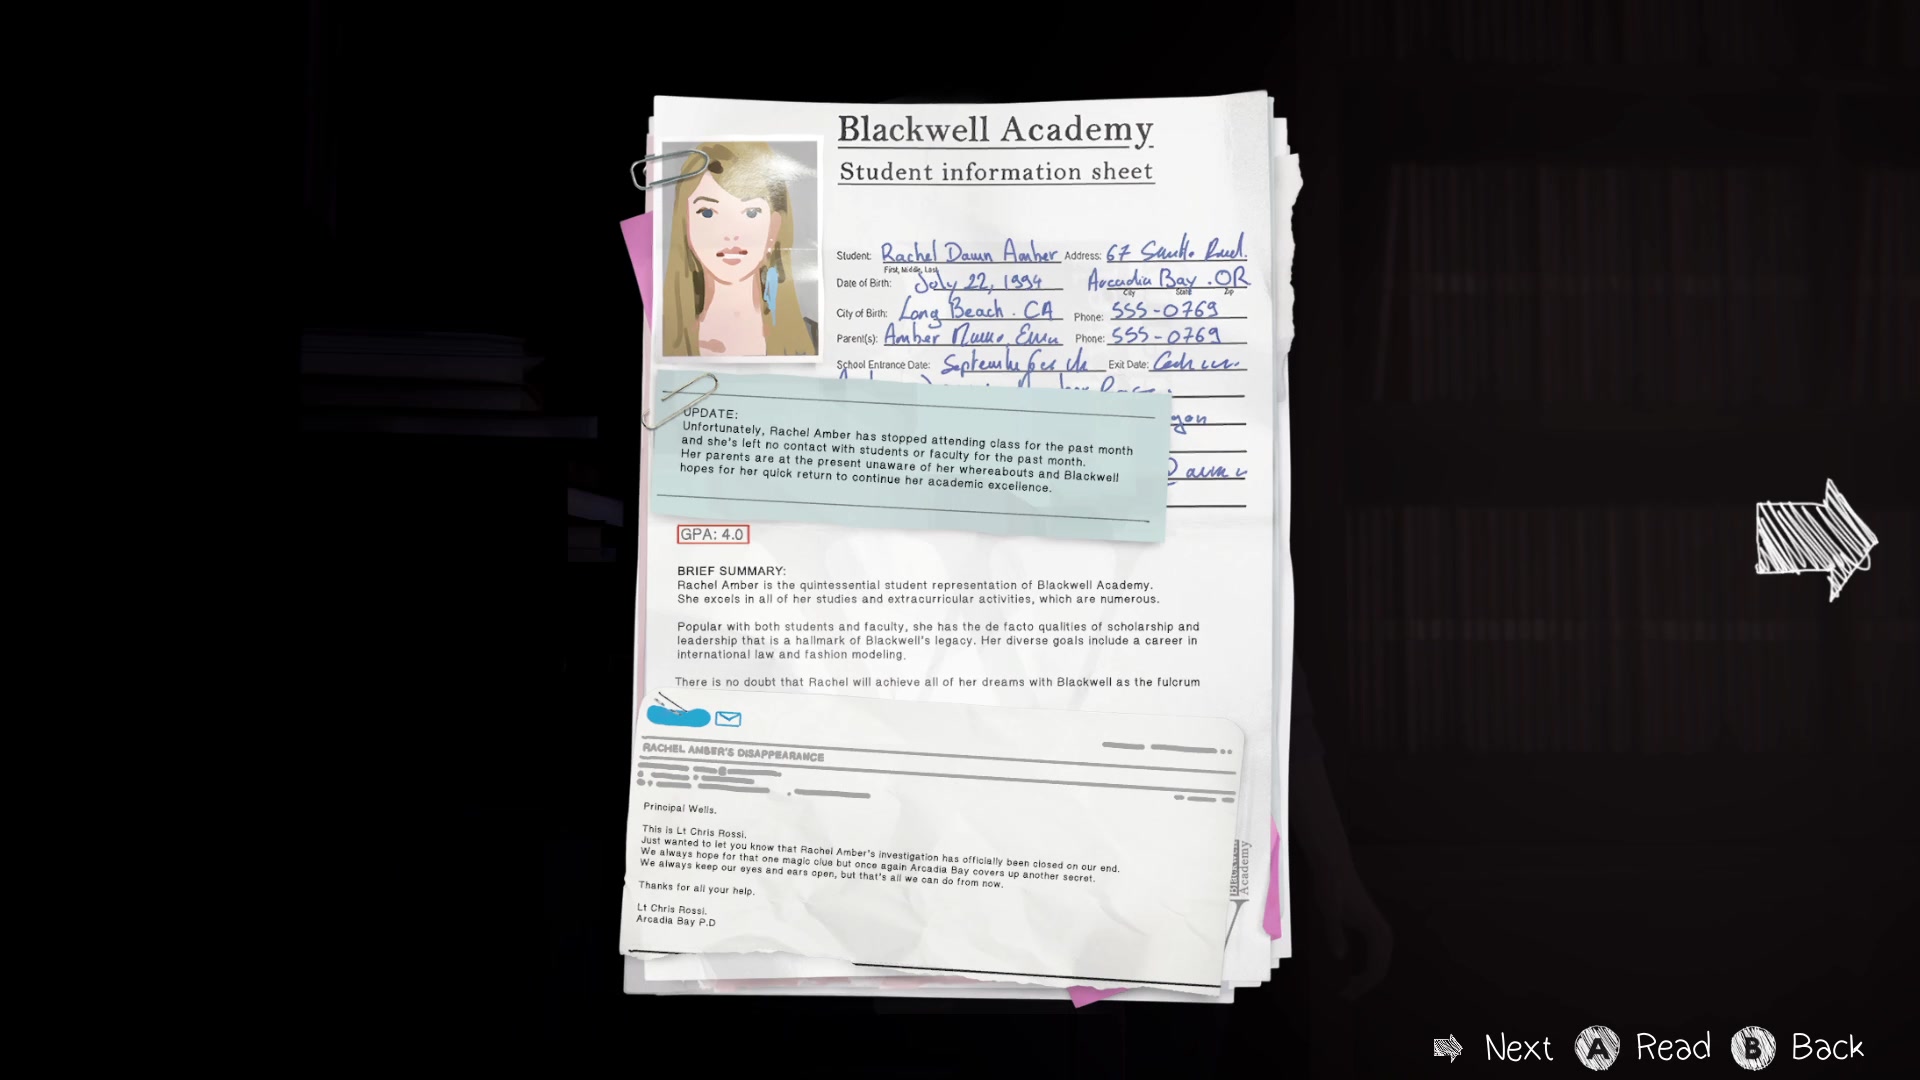 Blackwell Academy
Student information sheet
Student: Rachel Dawn Amber Address: 67
First, Middle, Last
Date of Birth: July 22, 1994 Arcadia Bay . OR
City State Zip
City of Birth: Long Beach . CA Phone: 555-0769
Parent(s): Amber Phone: 555-0769
School Entrance Date: Exit Date:
UPDATE:
Unfortunately, Rachel Amber has stopped attending class for the past month
and she's left no contact with students or faculty for the past month.
Her parents are at the present unaware of her whereabouts and Blackwell
hopes for her quick return to continue her academic excellence.
GPA: 4.0
BRIEF SUMMARY:
Rachel Amber is the quintessential student representation of Blackwell Academy.
She excels in all of her studies and extracurricular activities, which are numerous.
Popular with both students and faculty, she has the de facto qualities of scholarship and
leadership that is a hallmark of Blackwell's legacy. Her diverse goals include a career in
international law and fashion modeling.
There is no doubt that Rachel will achieve all of her dreams with Blackwell as the fulcrum
RACHEL AMBER'S DISAPPEARANCE
Principal Wells.
This is Lt Chris Rossi.
Just wanted to let you know that Rachel Amber's investigation has officially been closed on our end.
We always hope for that one magic clue but once again Arcadia Bay covers up another secret.
We always keep our eyes and ears open, but that's all we can do from now.
Thanks for all your help.
Lt Chris Rossi.
Arcadia Bay P.D
Blackwell
Academy
Next A Read B Back